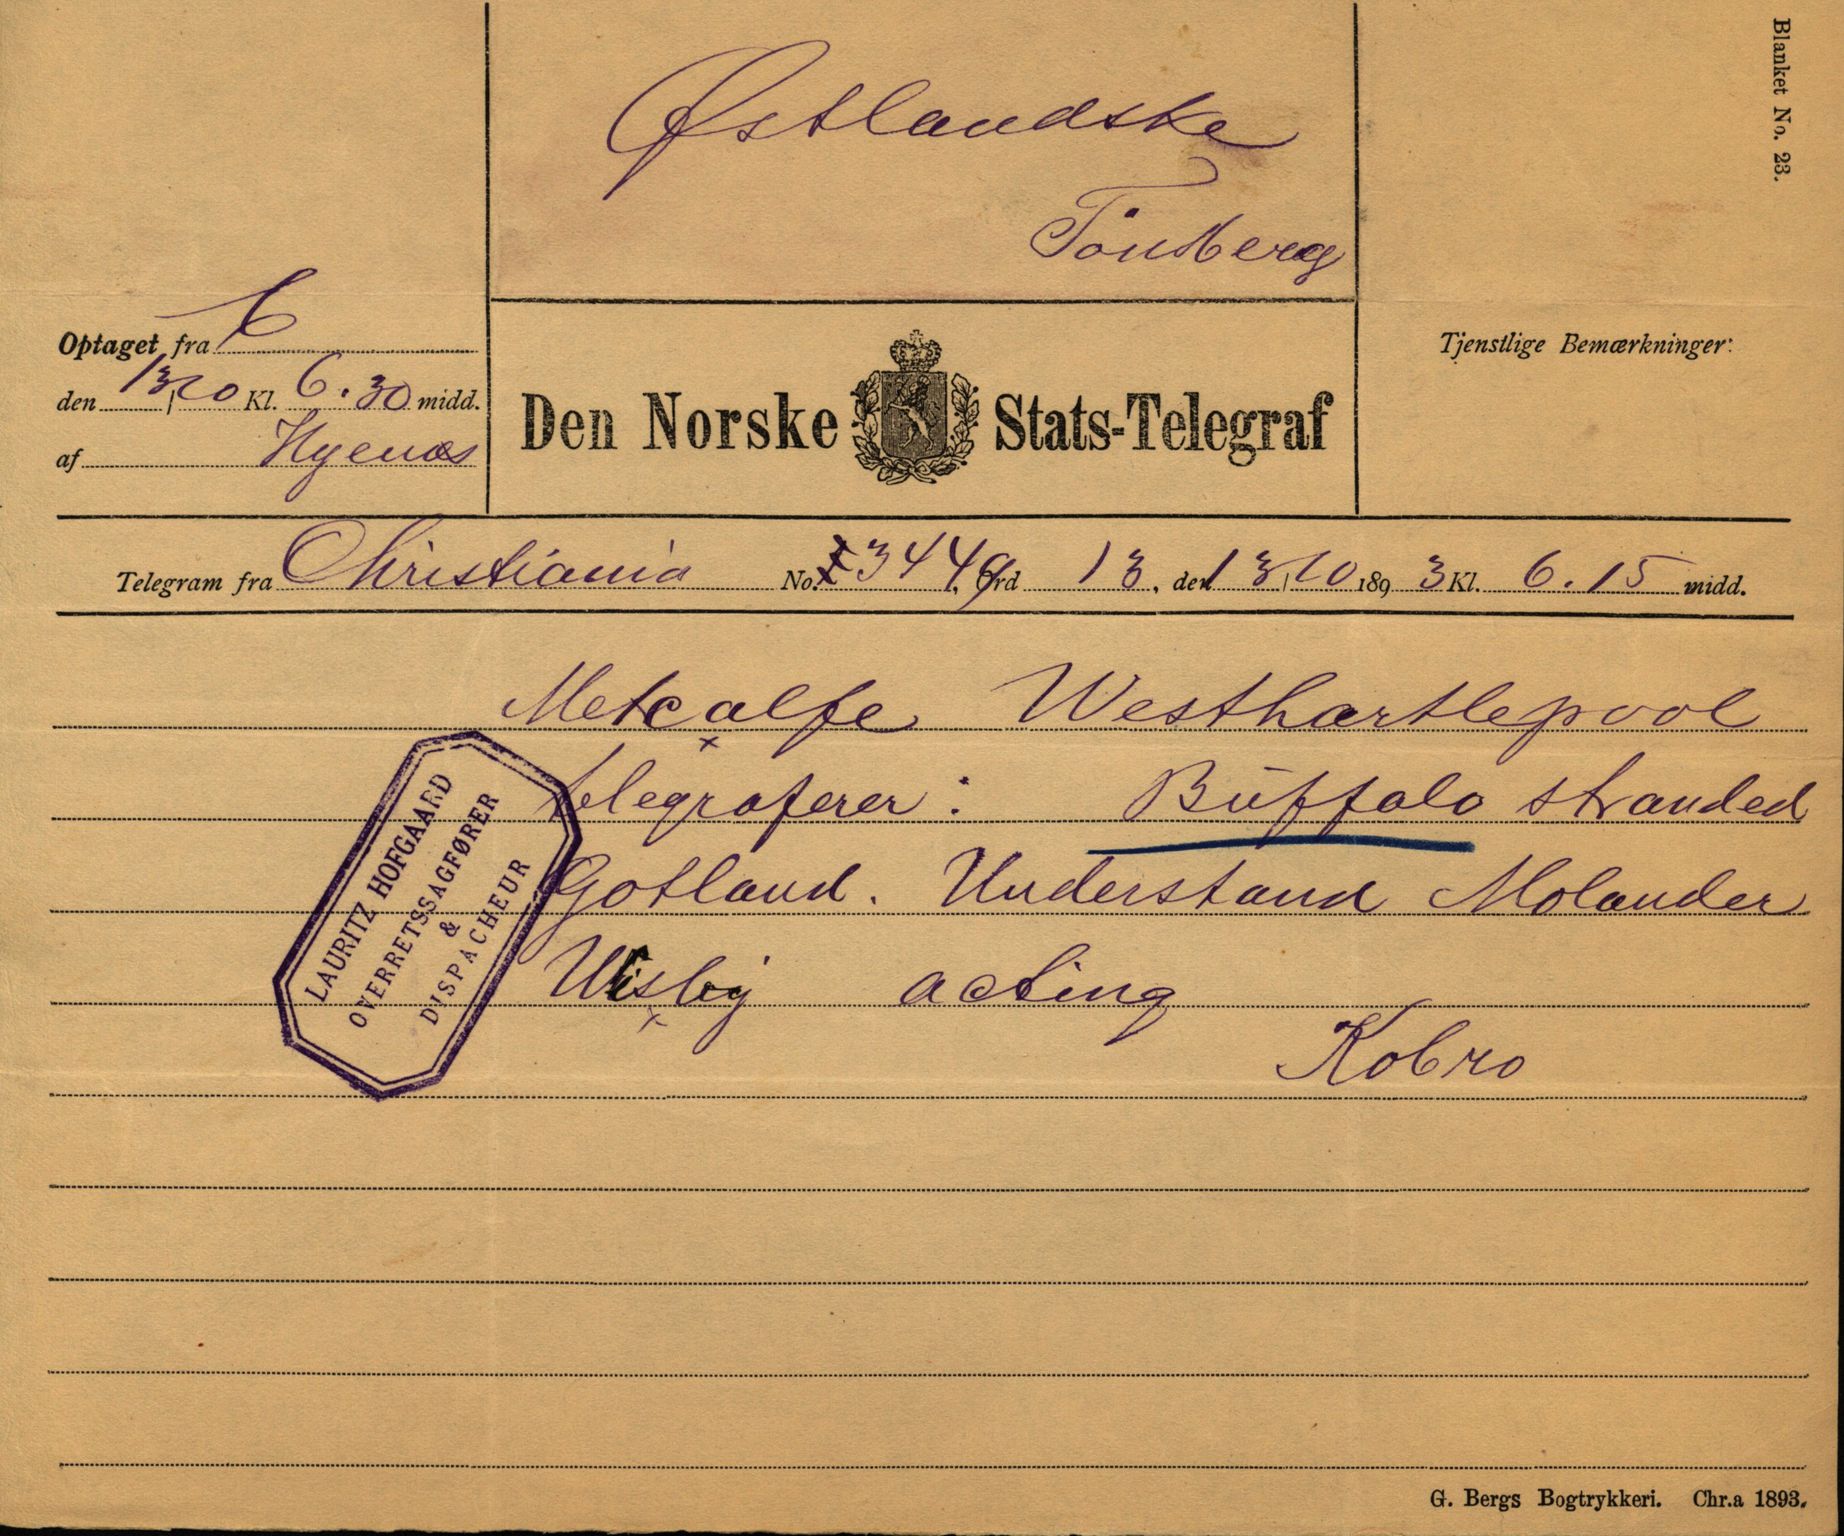 Blanket No. 23.
Østlandske
Tönsberg
Optaget fra C
den 13/10 Kl. 6.30 midd.
af
Den Norske Stats-Telegraf
Tjenstlige Bemærkninger:
Telegram fra Christiania No. 3449. Ord 13, den 13/10 1893 Kl. 6.15 midd.
Metcalfe Westhartlepool
telegraferer: Buffalo stranded
Gotland. Understand Molander
Wisby acting
Kobro
LAURITZ HOFGAARD
OVERRETSSAGFØRER
&
DISPACHEUR
G. Bergs Bogtrykkeri. Chr.a 1893.